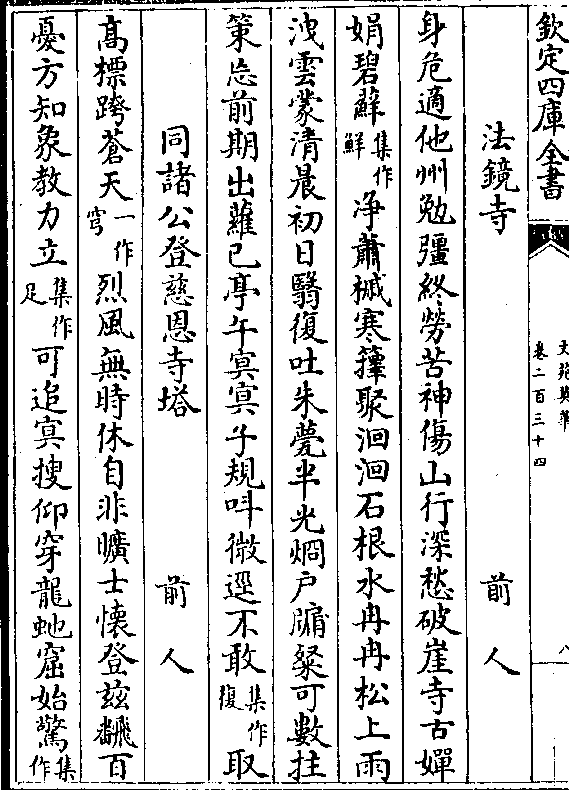 欽定四庫全書
文苑英華
卷二百三十四
八
法鏡寺 前人
身危適他州勉彊終勞苦神傷山行深愁破崖寺古嬋
娟碧蘚集作鮮净蕭槭寒籜聚洄洄石根水冉冉松上雨
洩雲蒙清晨初日翳復吐朱甍半光烱戸牖粲可數拄
策忘前期出蘿已亭午冥冥子規叫微逕不敢集作復取
同諸公登慈恩寺塔 前人
髙標跨蒼天一作穹烈風無時休自非曠士懐登兹翻百
憂方知象教力立集作足可追冥搜仰穿龍虵窟始驚集作